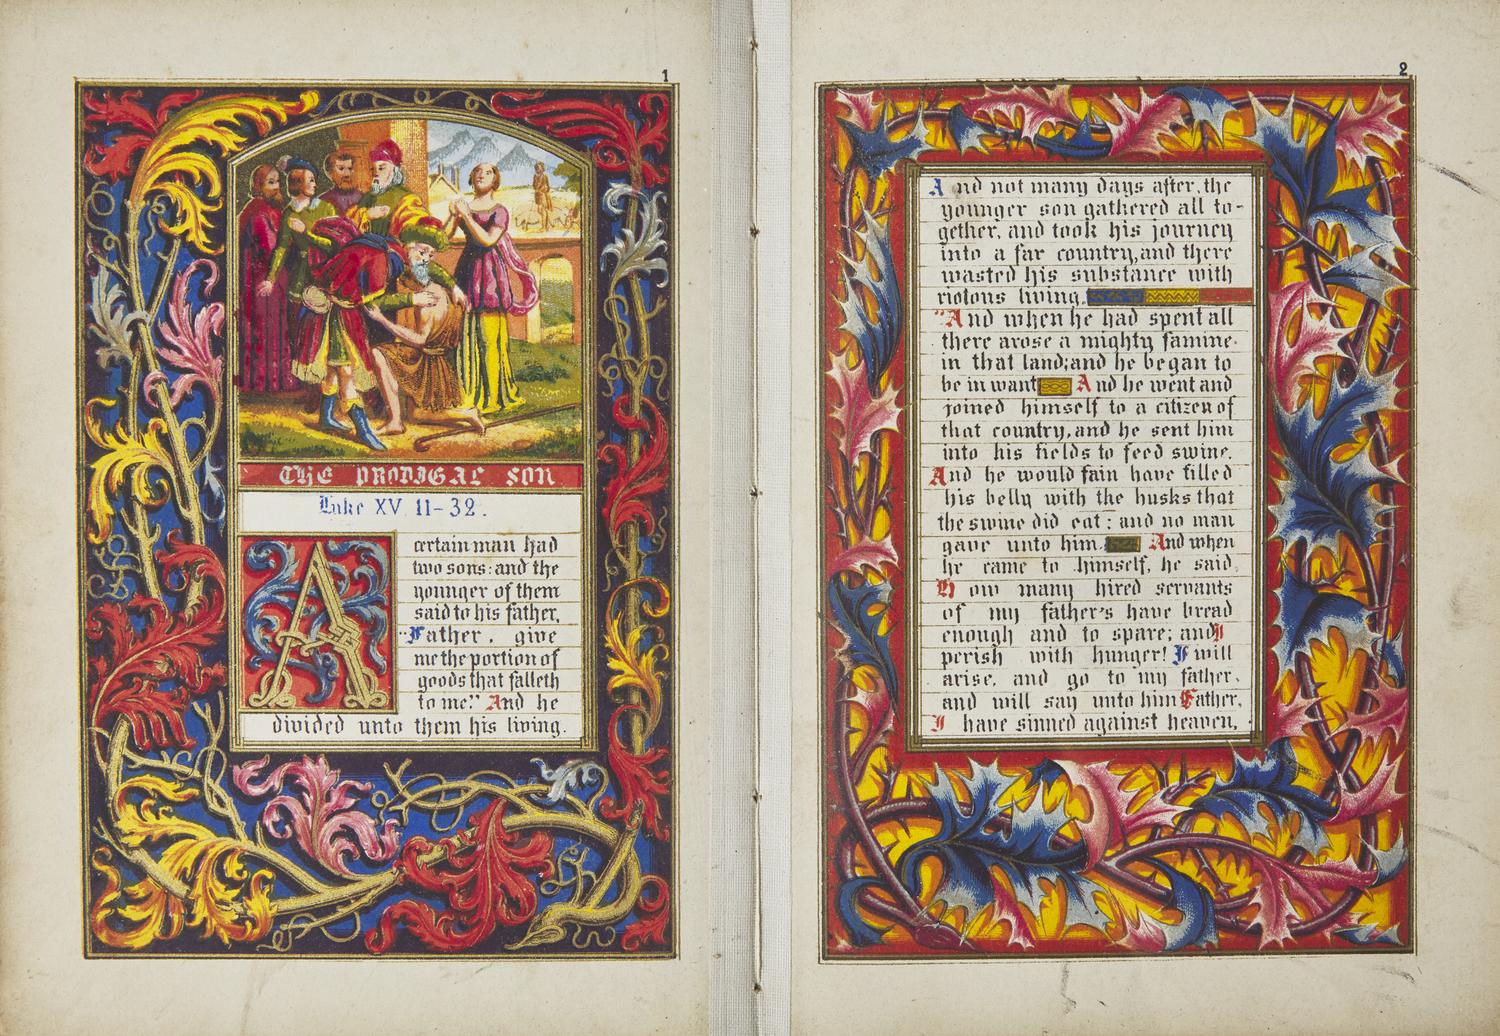 1
THE PRODIGAL SON
Luke XV 11-32.
A certain man had
two sons: and the
younger of them
said to his father,
"Father, give
me the portion of
goods that falleth
to me." And he
divided unto them his living.
2
And not many days after, the
younger son gathered all to-
gether, and took his journey
into a far country, and there
wasted his substance with
riotous living.
"And when he had spent all
there arose a mighty famine
in that land; and he began to
be in want And he went and
joined himself to a citizen of
that country, and he sent him
into his fields to feed swine.
And he would fain have filled
his belly with the husks that
the swine did eat: and no man
gave unto him And when
he came to himself, he said,
How many hired servants
of my father's have bread
enough and to spare; and I
perish with hunger! I will
arise, and go to my father,
and will say unto him Father,
I have sinned against heaven,